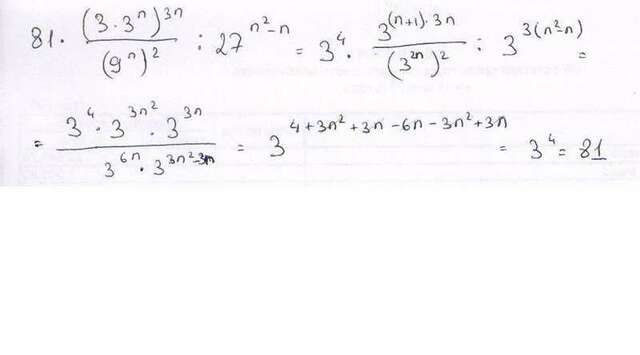 81 · (3 · 3^n)^{3n} / (9^n)^2 : 27^{n^2-n} = 3^4 · 3^{(n+1)·3n} / (3^{2n})^2 : 3^{3(n^2-n)} =
= 3^4 · 3^{3n^2} · 3^{3n} / 3^{6n} · 3^{3n^2-3n} = 3^{4+3n^2+3n-6n-3n^2+3n} = 3^4 = 81